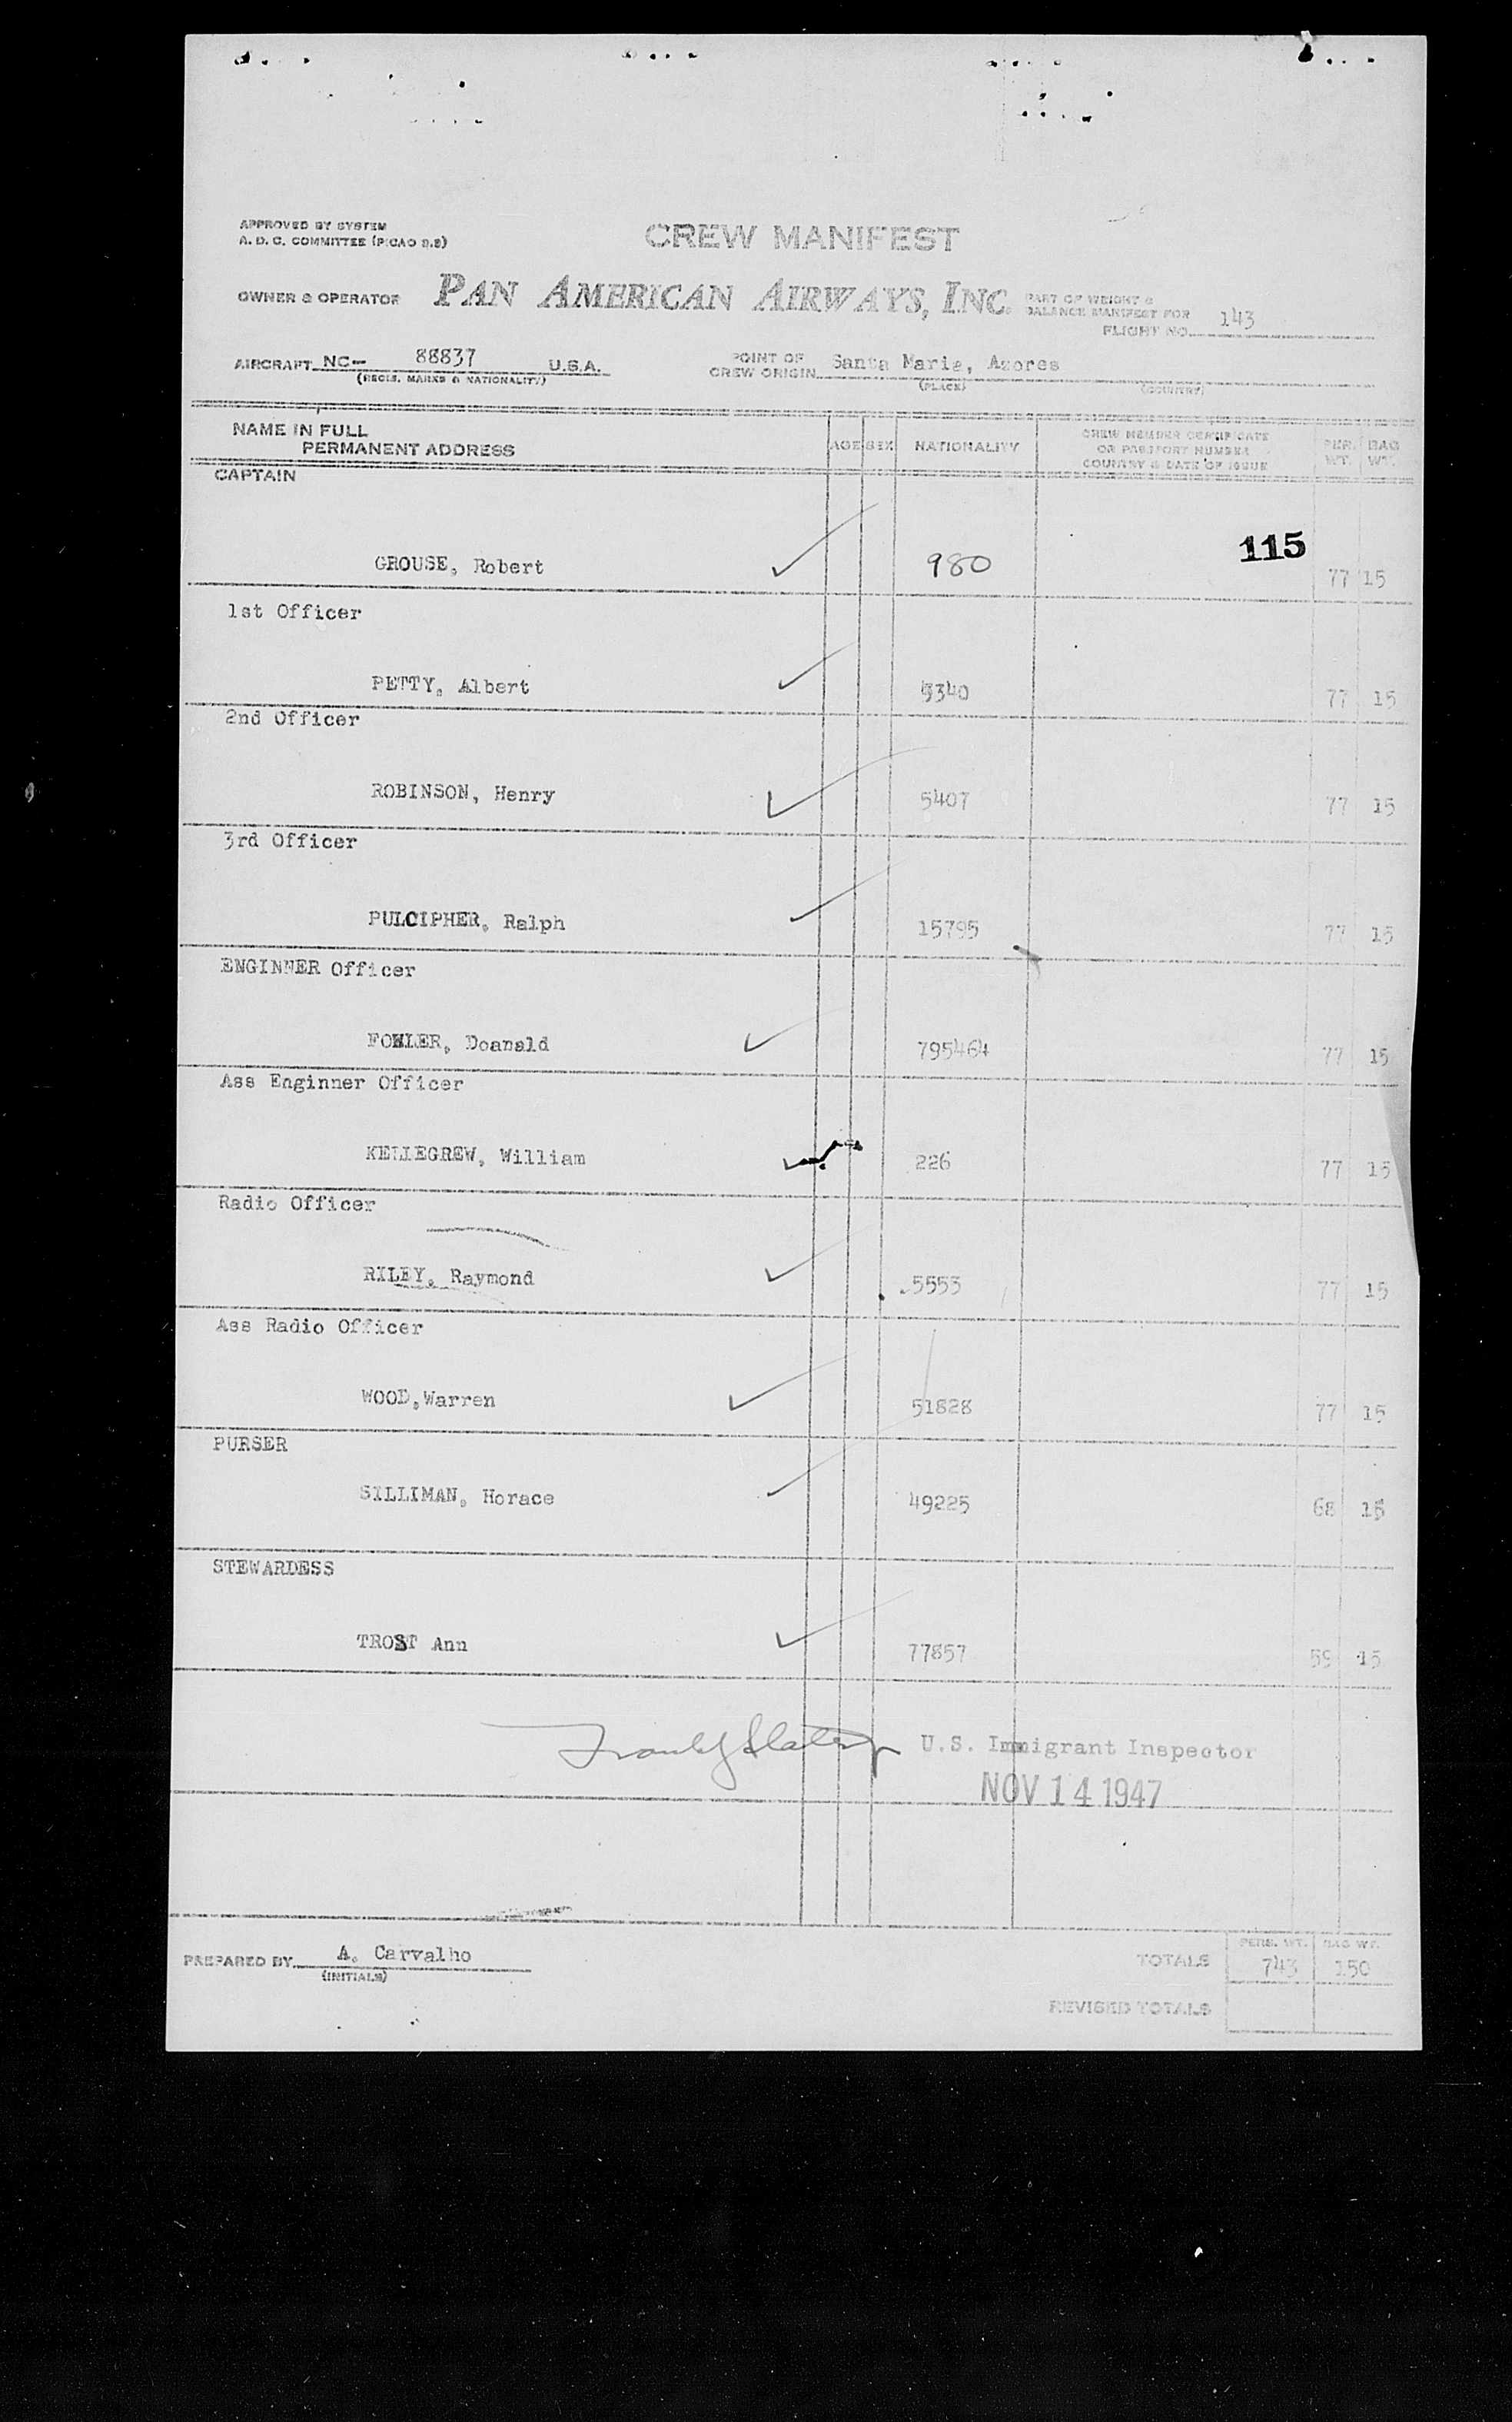 APPROVED BY SYSTEM
A. D. C. COMMITTEE (PICAO 9.8)
CREW MANIFEST
OWNER & OPERATOR PAN AMERICAN AIRWAYS, INC.
PART OF WEIGHT &
BALANCE MANIFEST FOR
FLIGHT NO. 143
AIRCRAFT NC- 88837 U.S.A.
(REGIS. MARKS & NATIONALITY)
POINT OF
CREW ORIGIN Santa Maria, Azores
(PLACE) (COUNTRY)
NAME IN FULL
PERMANENT ADDRESS
AGE SEX NATIONALITY
CREW MEMBER CERTIFICATE
OR PASSPORT NUMBER
COUNTRY & DATE OF ISSUE
PER. WT.
BAG WT.
CAPTAIN
115
GROUSE, Robert 980 77 15
1st Officer
PETTY, Albert 5340 77 15
2nd Officer
ROBINSON, Henry 5407 77 15
3rd Officer
PULCIPHER, Ralph 15795 77 15
ENGINNER Officer
FOWLER, Doanald 795464 77 15
Ass Enginner Officer
KELLEGREW, William 226 77 15
Radio Officer
RILEY, Raymond 5553 77 15
Ass Radio Officer
WOOD, Warren 51828 77 15
PURSER
SILLIMAN, Horace 49225 68 15
STEWARDESS
TROST Ann 77857 59 15
U.S. Immigrant Inspector
NOV 14 1947
PREPARED BY A. Carvalho
(INITIALS)
PERS. WT. BAG WT.
TOTALS 743 150
REVISED TOTALS